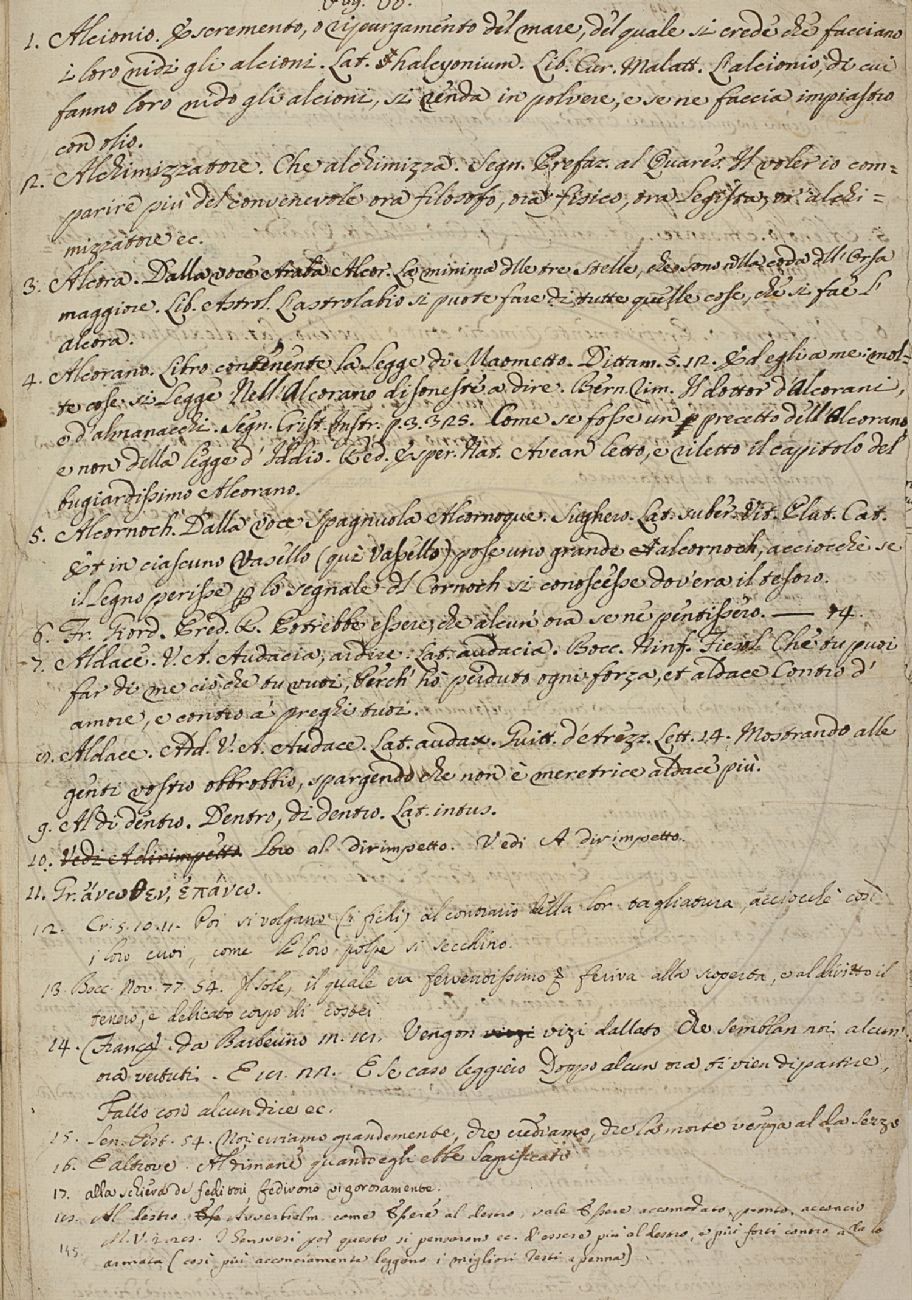 Pag. 60.
1. Alcionio. Escremento, o ripurgamento del mare, del quale si crede che facciano
i loro nidi gli alcioni. Lat. halcyonium. Lib. Cur. Malatt. L'alcionio, di cui
fanno loro nido gli alcioni, si renda in polvere, e se ne faccia impiastro
con olio.
2. Alchimizzatore. Che alchimizza. Segn. Prefaz. al Quares. Il voler io com=
parire più del convenevole ora filosofo, ora fisico, ora Legista, or' alchi=
mizzatore ec.
3. Alcora. Dalla voce Araba Alcor. La minima dlle tre stelle, che sono nlla coda dll'Orsa
maggiore. Lib. Astrol. L'astrolabio si puote fare di tutte quelle cose, che si fae l'
alcora.
4. Alcorano. Libro contenente la Legge di Maometto. Dittam. 5. 12. Ed egli a me: mol-
te cose si Legge Nell'Alcorano disoneste a dire. Bern. Rim. Il dottor d'Alcorani,
o d'almanacchi. Segn. Crist. Instr. p. 3. 325. Come se fosse un precetto dell'Alcorano
e non della legge d'Iddio. Red. Esper. Nat. Avean letto, e riletto il capitolo del
bugiardissimo Alcorano.
5. Alcornoch. Dalla voce Spagnuola Alcornoque. Sughero. Lat. suber. Vit. Plat. Cat.
Et in ciascuno Vasello (qui Vasello) pose uno grande alcornoch, acciocchè se
il Legno perisse p lo segnale dl Cornoch si conoscesse dov'era il tesoro.
6. Fr. Giord. Pred. R. Potrebbe essere, che alcun'ora se ne pentissero. — 74.
7. Aldace. V. A. Audacia, ardire. Lat. audacia. Bocc. Ninf. Fiesol. Che tu puoi
far di me ciò, che tu vuoi, Perch'ho perduto ogni forza, et aldace Contro d'
amore, e contro a' preghi tuoi.
8. Aldace. Add. V. A. Audace. Lat. audax. Guitt. d'Arezz. Lett. 14. Mostrando alle
genti vostro obbrobbio, spargendo che non è meretrice aldace più.
9. Al di dentro. Dentro, di dentro. Lat. intus.
10. Vedi A dirimpetto. Loro al dirimpetto. Vedi A dirimpetto.
11. Gr. ἄνωθεν, ἐπάνω.
12. Cr. 5. 10. 11. Poi si volgano (i fichi) al contrario della lor tagliatura, acciocchè così
i loro cuoi, come le loro polpe si secchino.
13. Bocc. Nov. 77. 54. Il sole, il quale era ferventissimo feriva alla scoperta, e al diritto il
tenero, e delicato corpo di costei
14. (Franc.) da Barberino 111. 101. Vengon vizi dallato Che semblan noi alcun'
ora vertuti. E Se caso leggiero Doppo alcun ora ti vien dipartire,
Fallo con alcun dice ec.
15. Sen. Pist. 54. Noi erriamo grandemente, che crediamo, che la morte venga al da sezzo
16. E altrove. Al dimane quando egli ebbe sagrificato
17. alla schiera de' feditori, fedirono vigorosamente.
18. Al destro. Avverbialm. come Essere al destro, vale Essere accomodato, pronto, acconcio
M. V. I Genovesi per questo si pensarono ec. d'essere più al destro, e più forti contro alla lo
145. armata (così più acconciamente leggono i migliori Testi a penna)